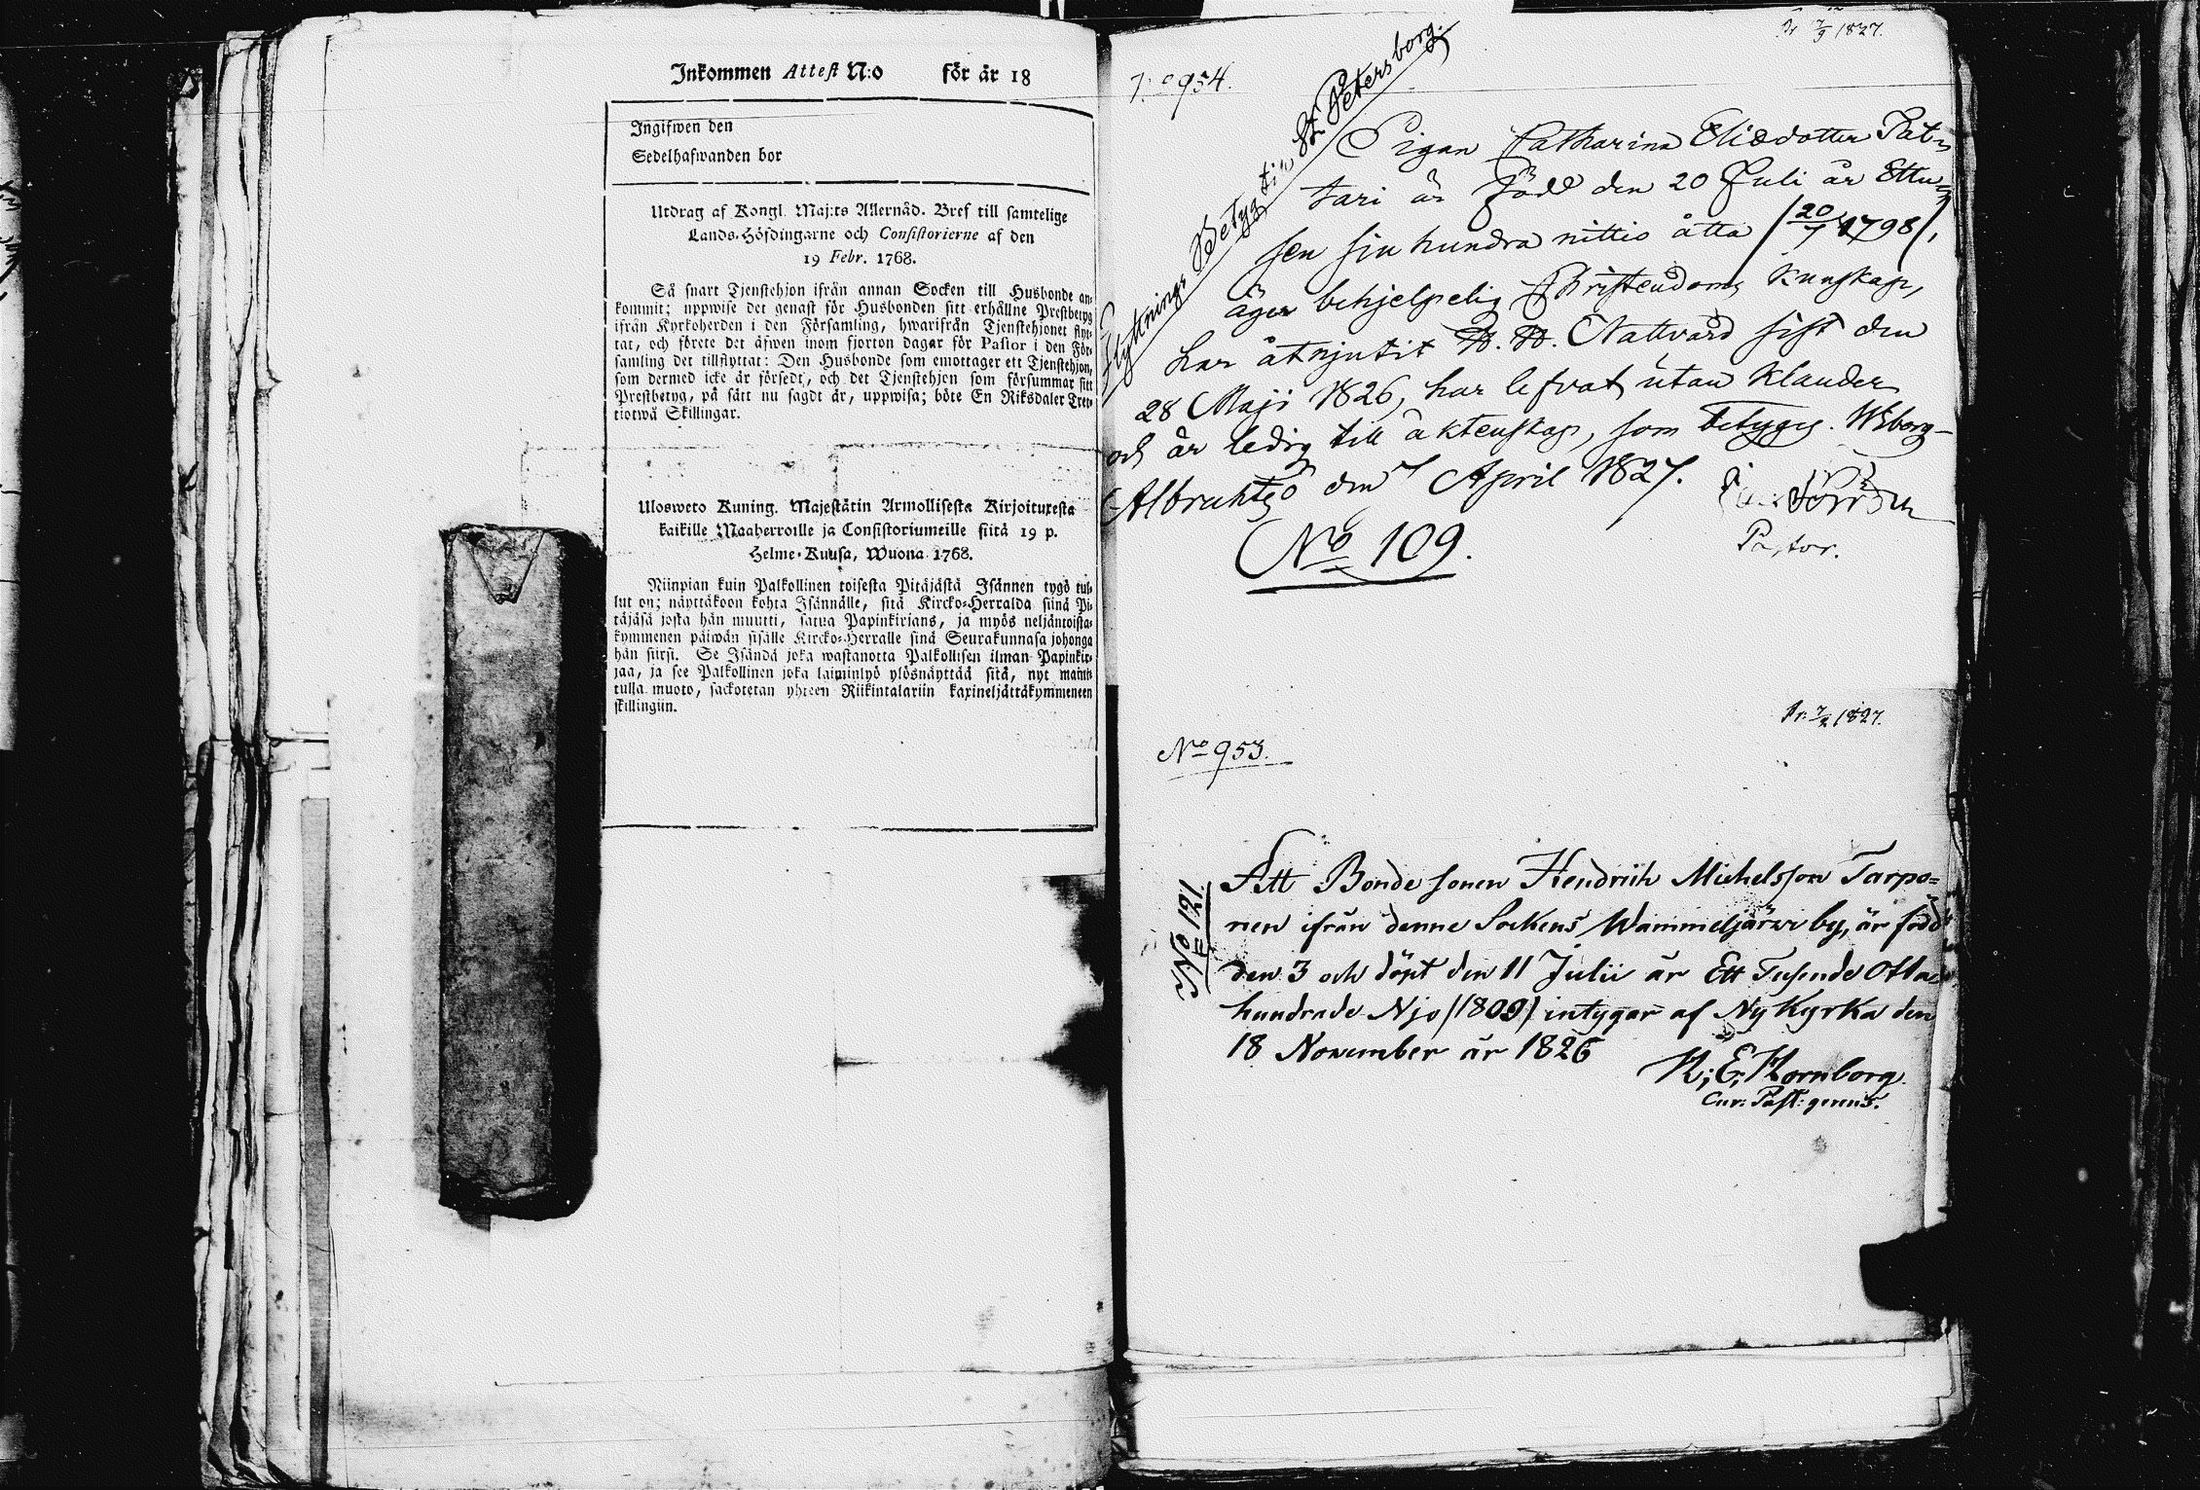 Inkommen Attest N:o för år 18
Ingifwen den
Sedelhafwanden bor
Utdrag af Kongl. Maj:ts Allernåd. Bref till samtelige
Lands-Höfdingarne och Consistorierne af den
19 Febr. 1768.
Så snart Tjenstehjon ifrån annan Socken till Husbonde an-
kommit; uppwise det genast för Husbonden sitt erhållne Prestbetyg
ifrån Kyrkoherden i den Församling, hwarifrån Tjenstehjonet flyt-
tat, och förete det äfwen inom fjorton dagar för Pastor i den För-
samling det tillflyttat: Den Husbonde som emottager ett Tjenstehjon,
som dermed icke är försedt, och det Tjenstehjon som försummar sitt
Prestbetyg, på sätt nu sagdt är, uppwisa; böte En Riksdaler Tret-
tiotwå Skillingar.
Ulosweto Kuning. Majestätin Armollisesta Kirjoituxesta
kaikille Maaherroille ja Consistoriumeille siitä 19 p.
Helme-Kuusa, Wuona 1768.
Niinpian kuin Palkollinen toisesta Pitäjästä Isännen tygö tul-
lut on; näyttäkoon kohta Isännälle, sitä Kircko-Herralda siinä Pi-
täjäsä josta hän muutti, saatua Papinkirjans, ja myös neljäntoista-
kymmenen päiwän sisälle Kircko-Herralle sinä Seurakunnasa johonga
hän siirsi. Se Isändä joka wastanotta Palkollisen ilman Papinkir-
jaa, ja see Palkollinen joka laiminlyö ylösnäyttää sitä, nyt mainit-
tulla muoto, sackotetan yhteen Riikintalariin kaxineljättäkymmeneen
skillingiin.
7/9 1827.
954.
Flyttnings Betyg till St. Petersborg.
Pigan Catharina Eliædotter Pat-
tari är född den 20 Juli år Ettu-
sen sju hundra nittio åtta (20/7 1798),
äger behjelpelig Christendoms kunskap,
har åtnjutit H. H. Nattvard sist den
28 Maji 1826, har lefvat utan klander
och är ledig till äktenskap, som betygas. Wiborg
den 7 April 1827.
Pastor.
No 109.
1827.
No 953.
No 121.
Att Bonde sonen Hendrich Michelsson Tarpo-
nen ifrån denne Sockens Wammeljärwi by, är född
den 3 och döpt den 11 Julii år Ett Tusende Otta-
hundrade Njo (1809) intygar af Ny Kyrka den
18 November år 1826
K; E; Hornborg.
Cur: Past: gerens.